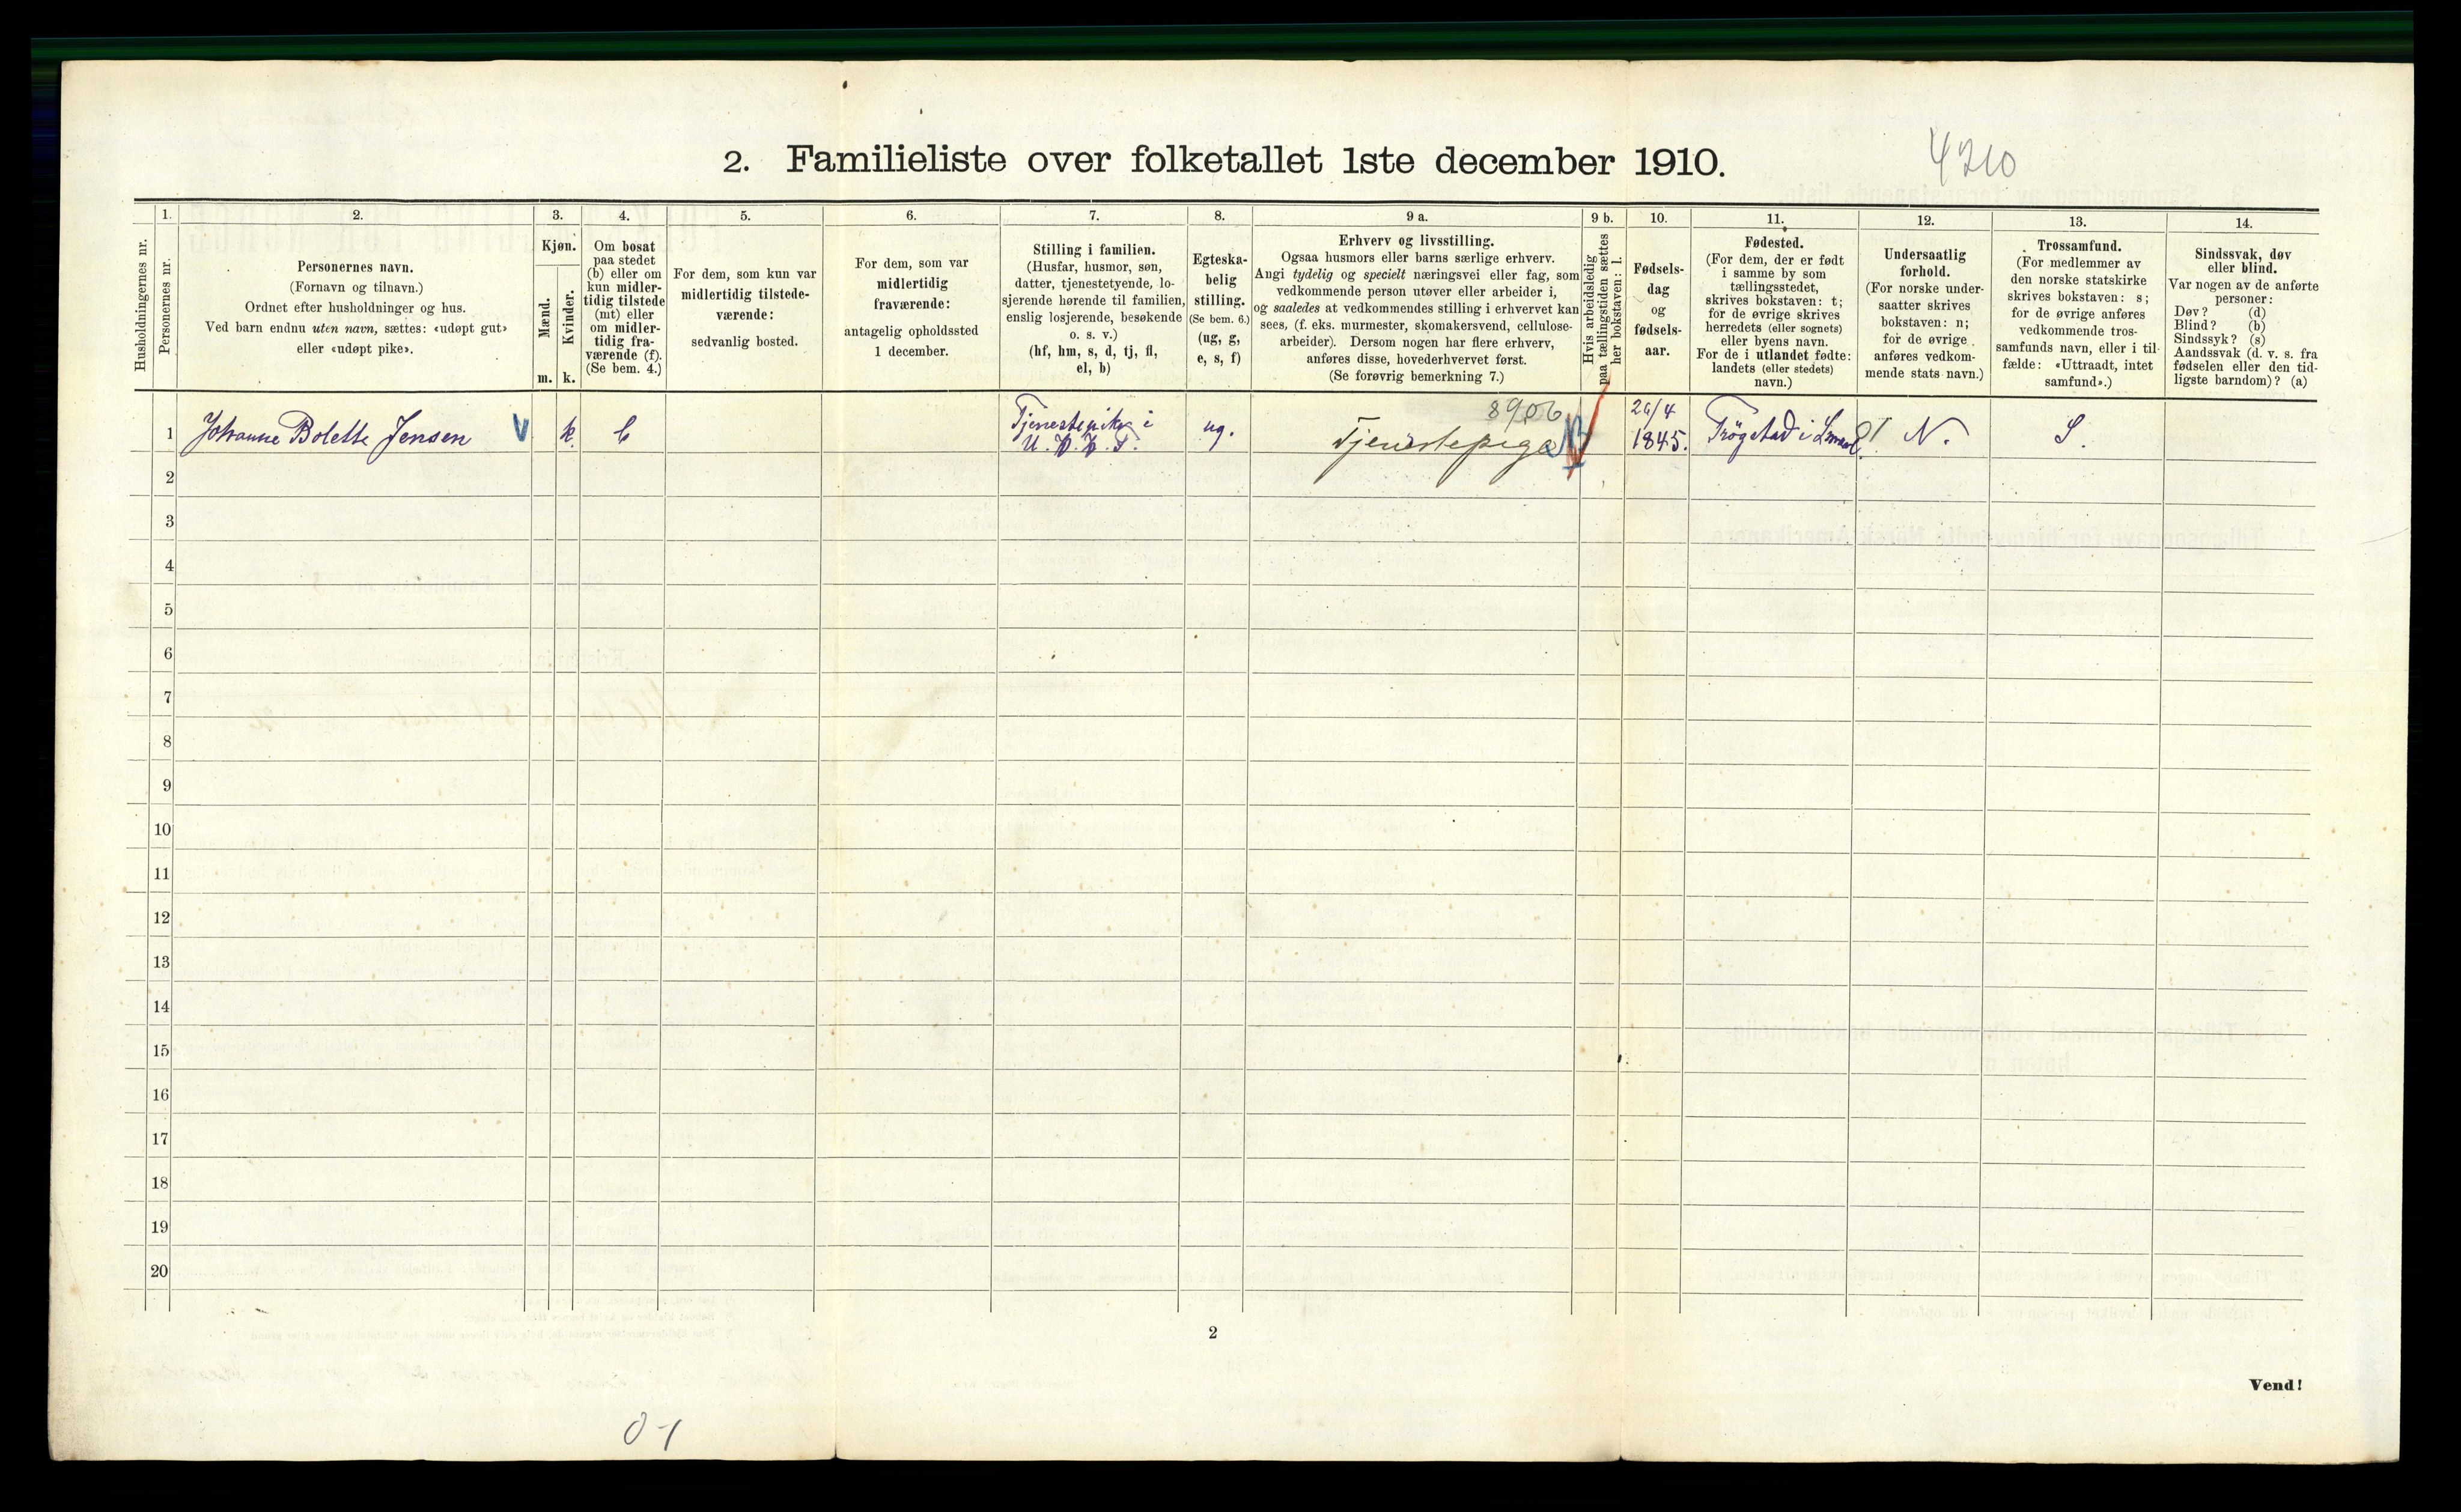 2. Familieliste over folketallet 1ste december 1910.
4210
Husholdningernes nr.
1.
Personernes nr.
2.
Personernes navn.
(Fornavn og tilnavn.)
Ordnet efter husholdninger og hus.
Ved barn endnu uten navn, sættes: «udøpt gut»
eller «udøpt pike».
3.
Kjøn.
Mænd.
Kvinder.
m. k.
4.
Om bosat
paa stedet
(b) eller om
kun midler-
tidig tilstede
(mt) eller
om midler-
tidig fra-
værende (f).
(Se bem. 4.)
5.
For dem, som kun var
midlertidig tilstede-
værende:
sedvanlig bosted.
6.
For dem, som var
midlertidig
fraværende:
antagelig opholdssted
1 december.
7.
Stilling i familien.
(Husfar, husmor, søn,
datter, tjenestetyende, lo-
sjerende hørende til familien,
enslig losjerende, besøkende
o. s. v.)
(hf, hm, s, d, tj, fl,
el, b)
8.
Egteska-
belig
stilling.
(Se bem. 6.)
(ug, g,
e, s, f)
9 a.
Erhverv og livsstilling.
Ogsaa husmors eller barns særlige erhverv.
Angi tydelig og specielt næringsvei eller fag, som
vedkommende person utøver eller arbeider i,
og saaledes at vedkommendes stilling i erhvervet kan
sees, (f. eks. murmester, skomakersvend, cellulose-
arbeider). Dersom nogen har flere erhverv,
anføres disse, hovederhvervet først.
(Se forøvrig bemerkning 7.)
9 b.
Hvis arbeidsledig
paa tællingstiden sættes
her bokstaven: l.
10.
Fødsels-
dag
og
fødsels-
aar.
11.
Fødested.
(For dem, der er født
i samme by som
tællingsstedet,
skrives bokstaven: t;
for de øvrige skrives
herredets (eller sognets)
eller byens navn.
For de i utlandet fødte:
landets (eller stedets)
navn.)
12.
Undersaatlig
forhold.
(For norske under-
saatter skrives
bokstaven: n;
for de øvrige
anføres vedkom-
mende stats navn.)
13.
Trossamfund.
(For medlemmer av
den norske statskirke
skrives bokstaven: s;
for de øvrige anføres
vedkommende tros-
samfunds navn, eller i til-
fælde: «Uttraadt, intet
samfund».)
14.
Sindssvak, døv
eller blind.
Var nogen av de anførte
personer:
Døv? (d)
Blind? (b)
Sindssyk? (s)
Aandssvak (d. v. s. fra
fødselen eller den tid-
ligste barndom)? (a)
1 Johanne Bolette Jensen V k. b Tjenestepike i ug. 8906 Tjenstepige 1845. Trögstad i 01 N. S.
2
3
4
5
6
7
8
9
10
11
12
13
14
15
16
17
18
19
20
2
Vend!
0-1